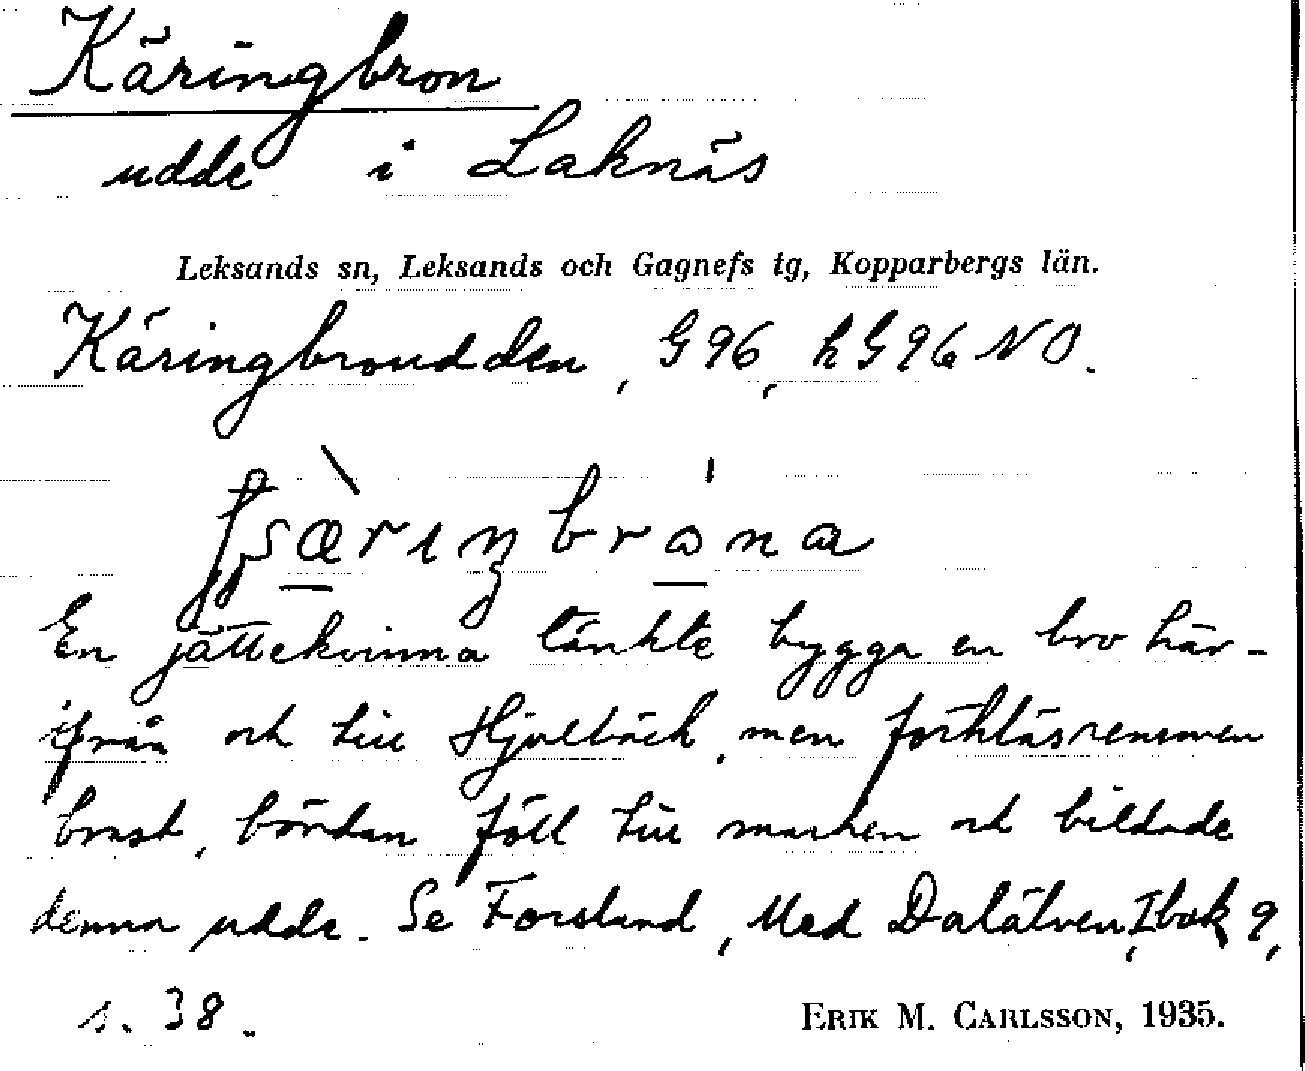 Käringbron
udde i Laknäs
Leksands sn, Leksands och Gagnefs tg, Kopparbergs län.
Käringbroudden, G 96, h G 96 NO.
En jättekvinna tänkte bygga en bro här-
ifrån och till Hjulbäck, men förklädsremmen
brast, bördan föll till marken och bildade
denna udde. Se Forslund, Med Dalälven, I bok 9,
s. 38.
ERIK M. CARLSSON, 1935.